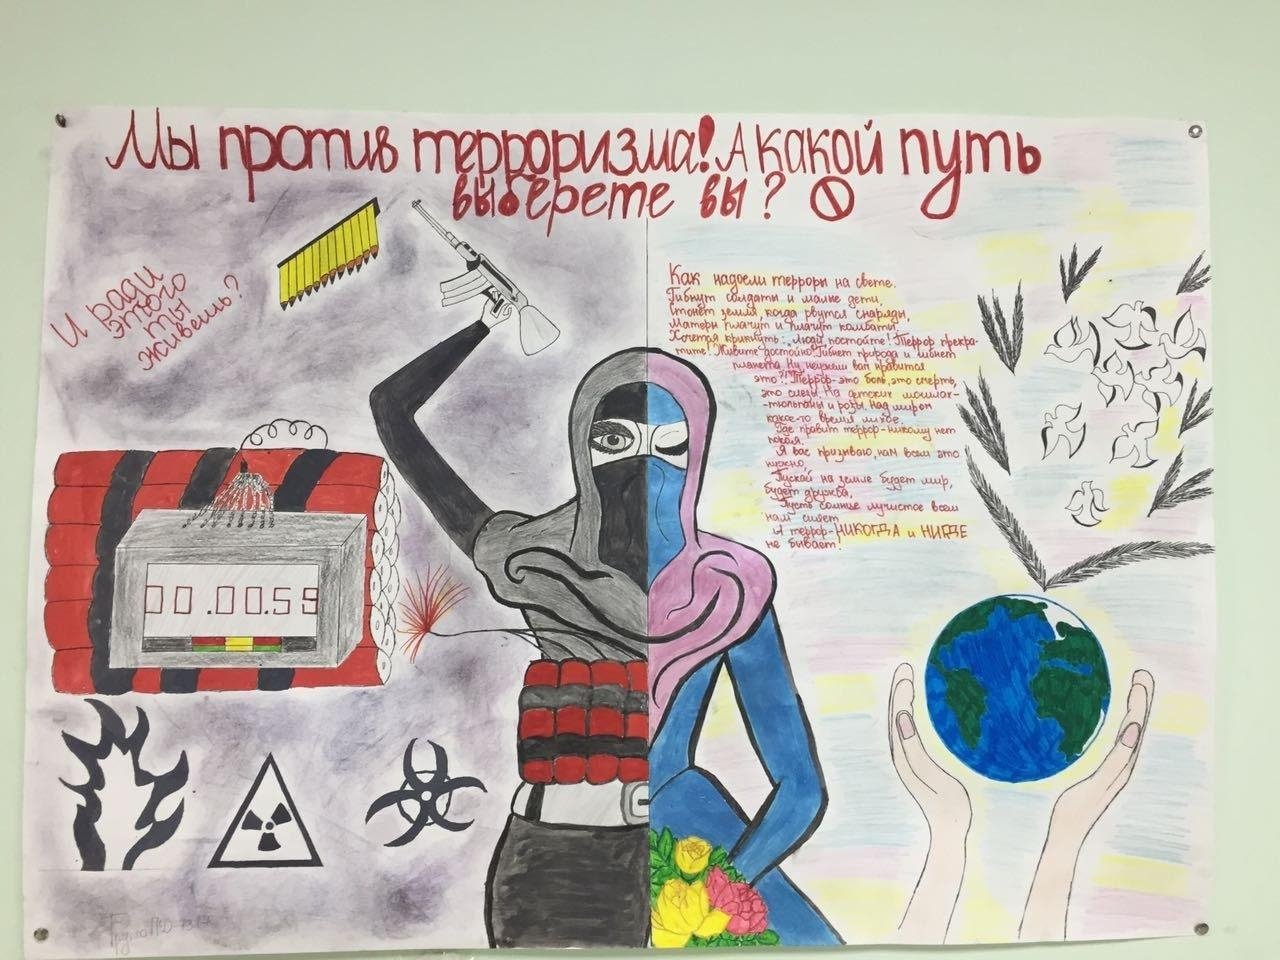 Мы против терроризма! А какой путь
выберете вы?
И ради
этого
ты
живешь?
Как надоели терроры на свете.
Гибнут солдаты и малые дети,
Стонет земля, когда рвутся снаряды,
Матери плачут и плачут комбаты.
Хочется крикнуть: "Люди, постойте! Террор прекра-
тите! Живите достойно! Гибнет природа и гибнет
планета. Ну неужели вам нравится
это?" Террор-это боль, это смерть,
это слезы, На детских могилах-
-тюльпаны и розы. Над миром
какое-то время лихое.
Где правит террор-никому нет
покоя.
Я вас призываю, нам всем это
нужно,
Пускай на земле будет мир,
будет дружба,
Пусть солнце лучистое всем
нам сияет
А террор-НИКОГДА и НИГДЕ
не бывает!
00.00.59
Группа ПД